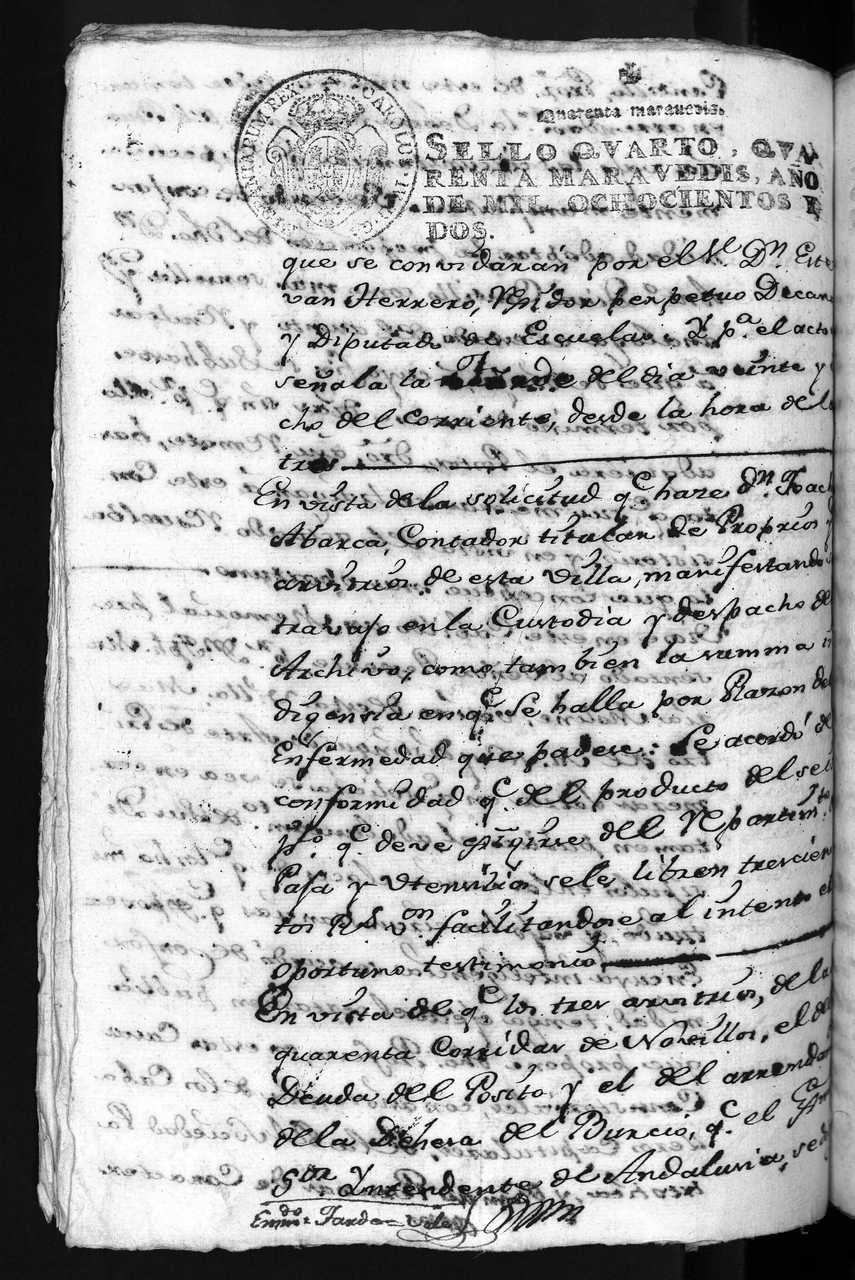 Quarenta maravedis.
CAROLUS IV D G HISPANIARUM REX
SELLO QVARTO, QVA
RENTA MARAVEDIS, AÑO
DE MIL OCHOCIENTOS Y
DOS.
que se convidarán por el Dn. Este
van Herrero, Rexidor perpetuo Decan
y Diputado de Escuelas. Y pa. el acto
señala la Tarde del dia veinte y
cho del corriente, desde la hora de la
tres
En vista de la solicitud qe. haze dn. Joach
Abarca, Contador titular de Proprios y
arvitrios de esta villa, manifestando
travajo en la Custodia y despacho del
Archivo, como tambien la summa in
digensia en qe. se halla por Razon de
Enfermedad que padese: Se acordó de
conformidad qe. del producto del
qe. deve exigirse del Repartimto.
Paja y Utensilios se le libren trescien
tos Rs. von facilitandose al intento el
oportuno testimonio
En vista de qe. los tres arvitrios, de la
quarenta Corridas de Novillos, el de
Deuda del Posito y el del arrendam
de la Dehesa del Burcio, qe. el
Sor. Yntendente de Andalusia, se
Enmdo. = Tarde = vale